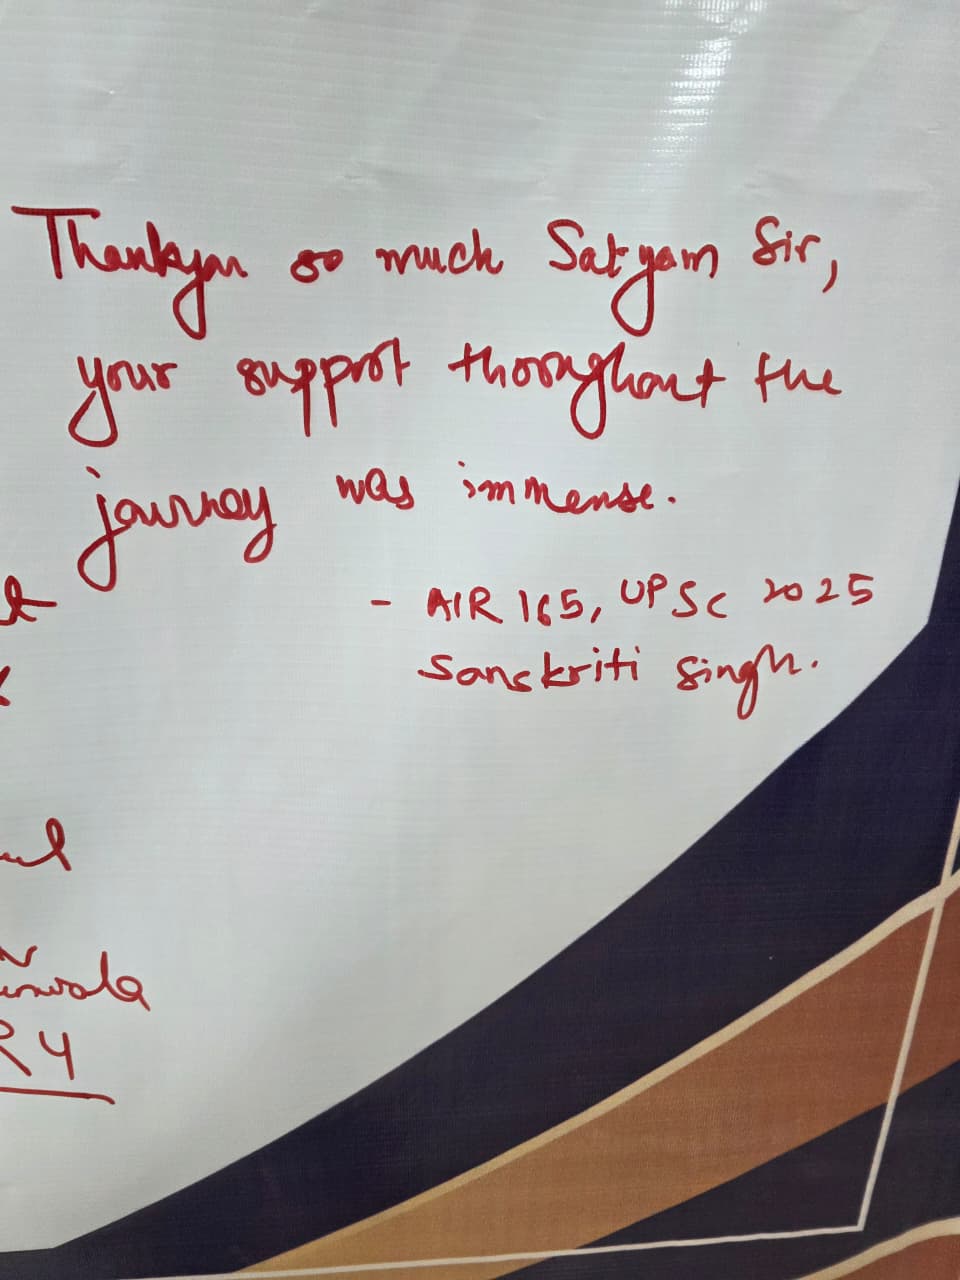 Thankyou so much Satyam Sir,
your support throughout the
journey was immense.
- AIR 165, UPSC 2025
Sanskriti Singh.